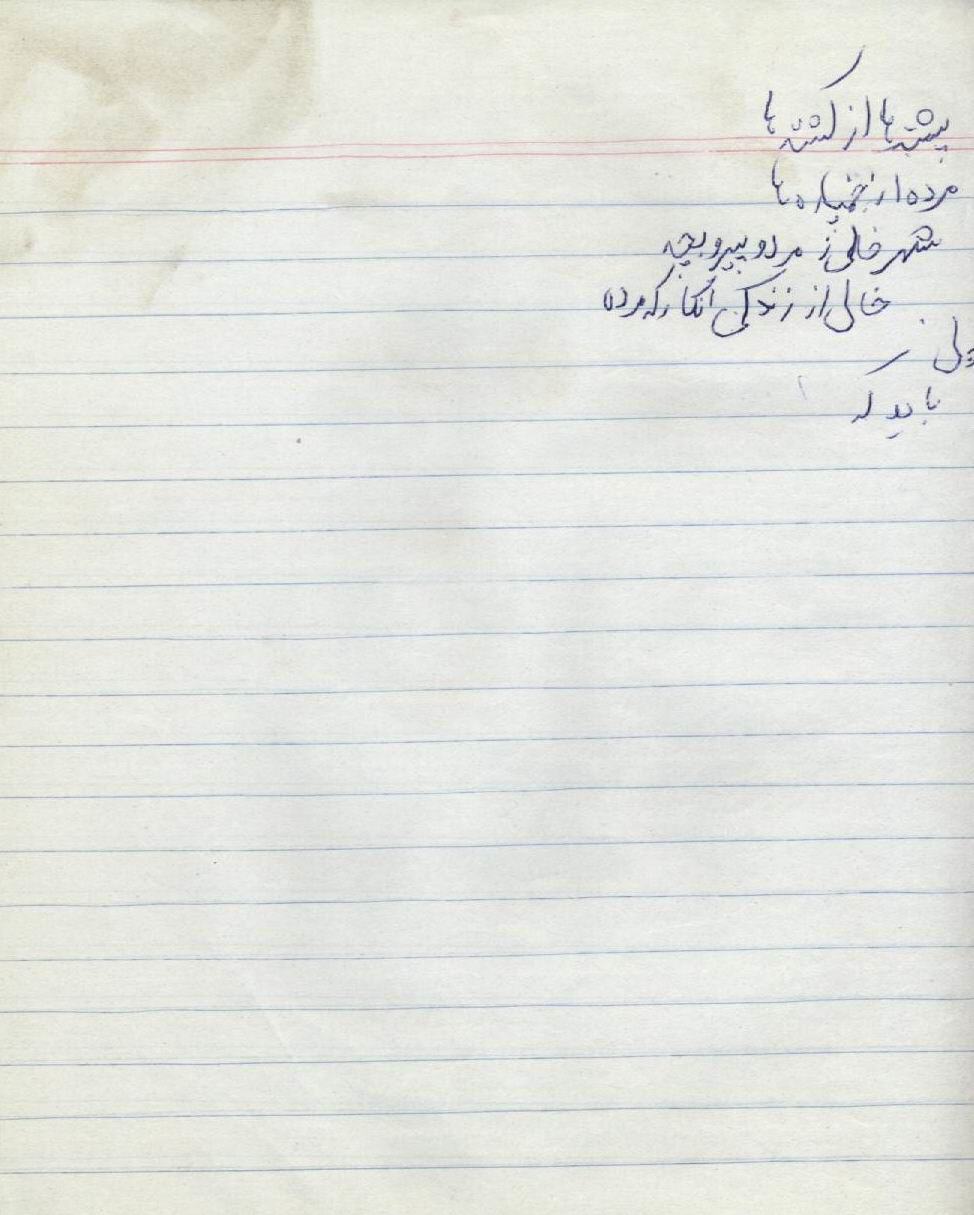 پشته ها از کشته ها
مرده از خمپاره ها
شهر خالی ز مرد و پیر و بچه
خالی از زندگی انگار که مرده
ولی
باید که